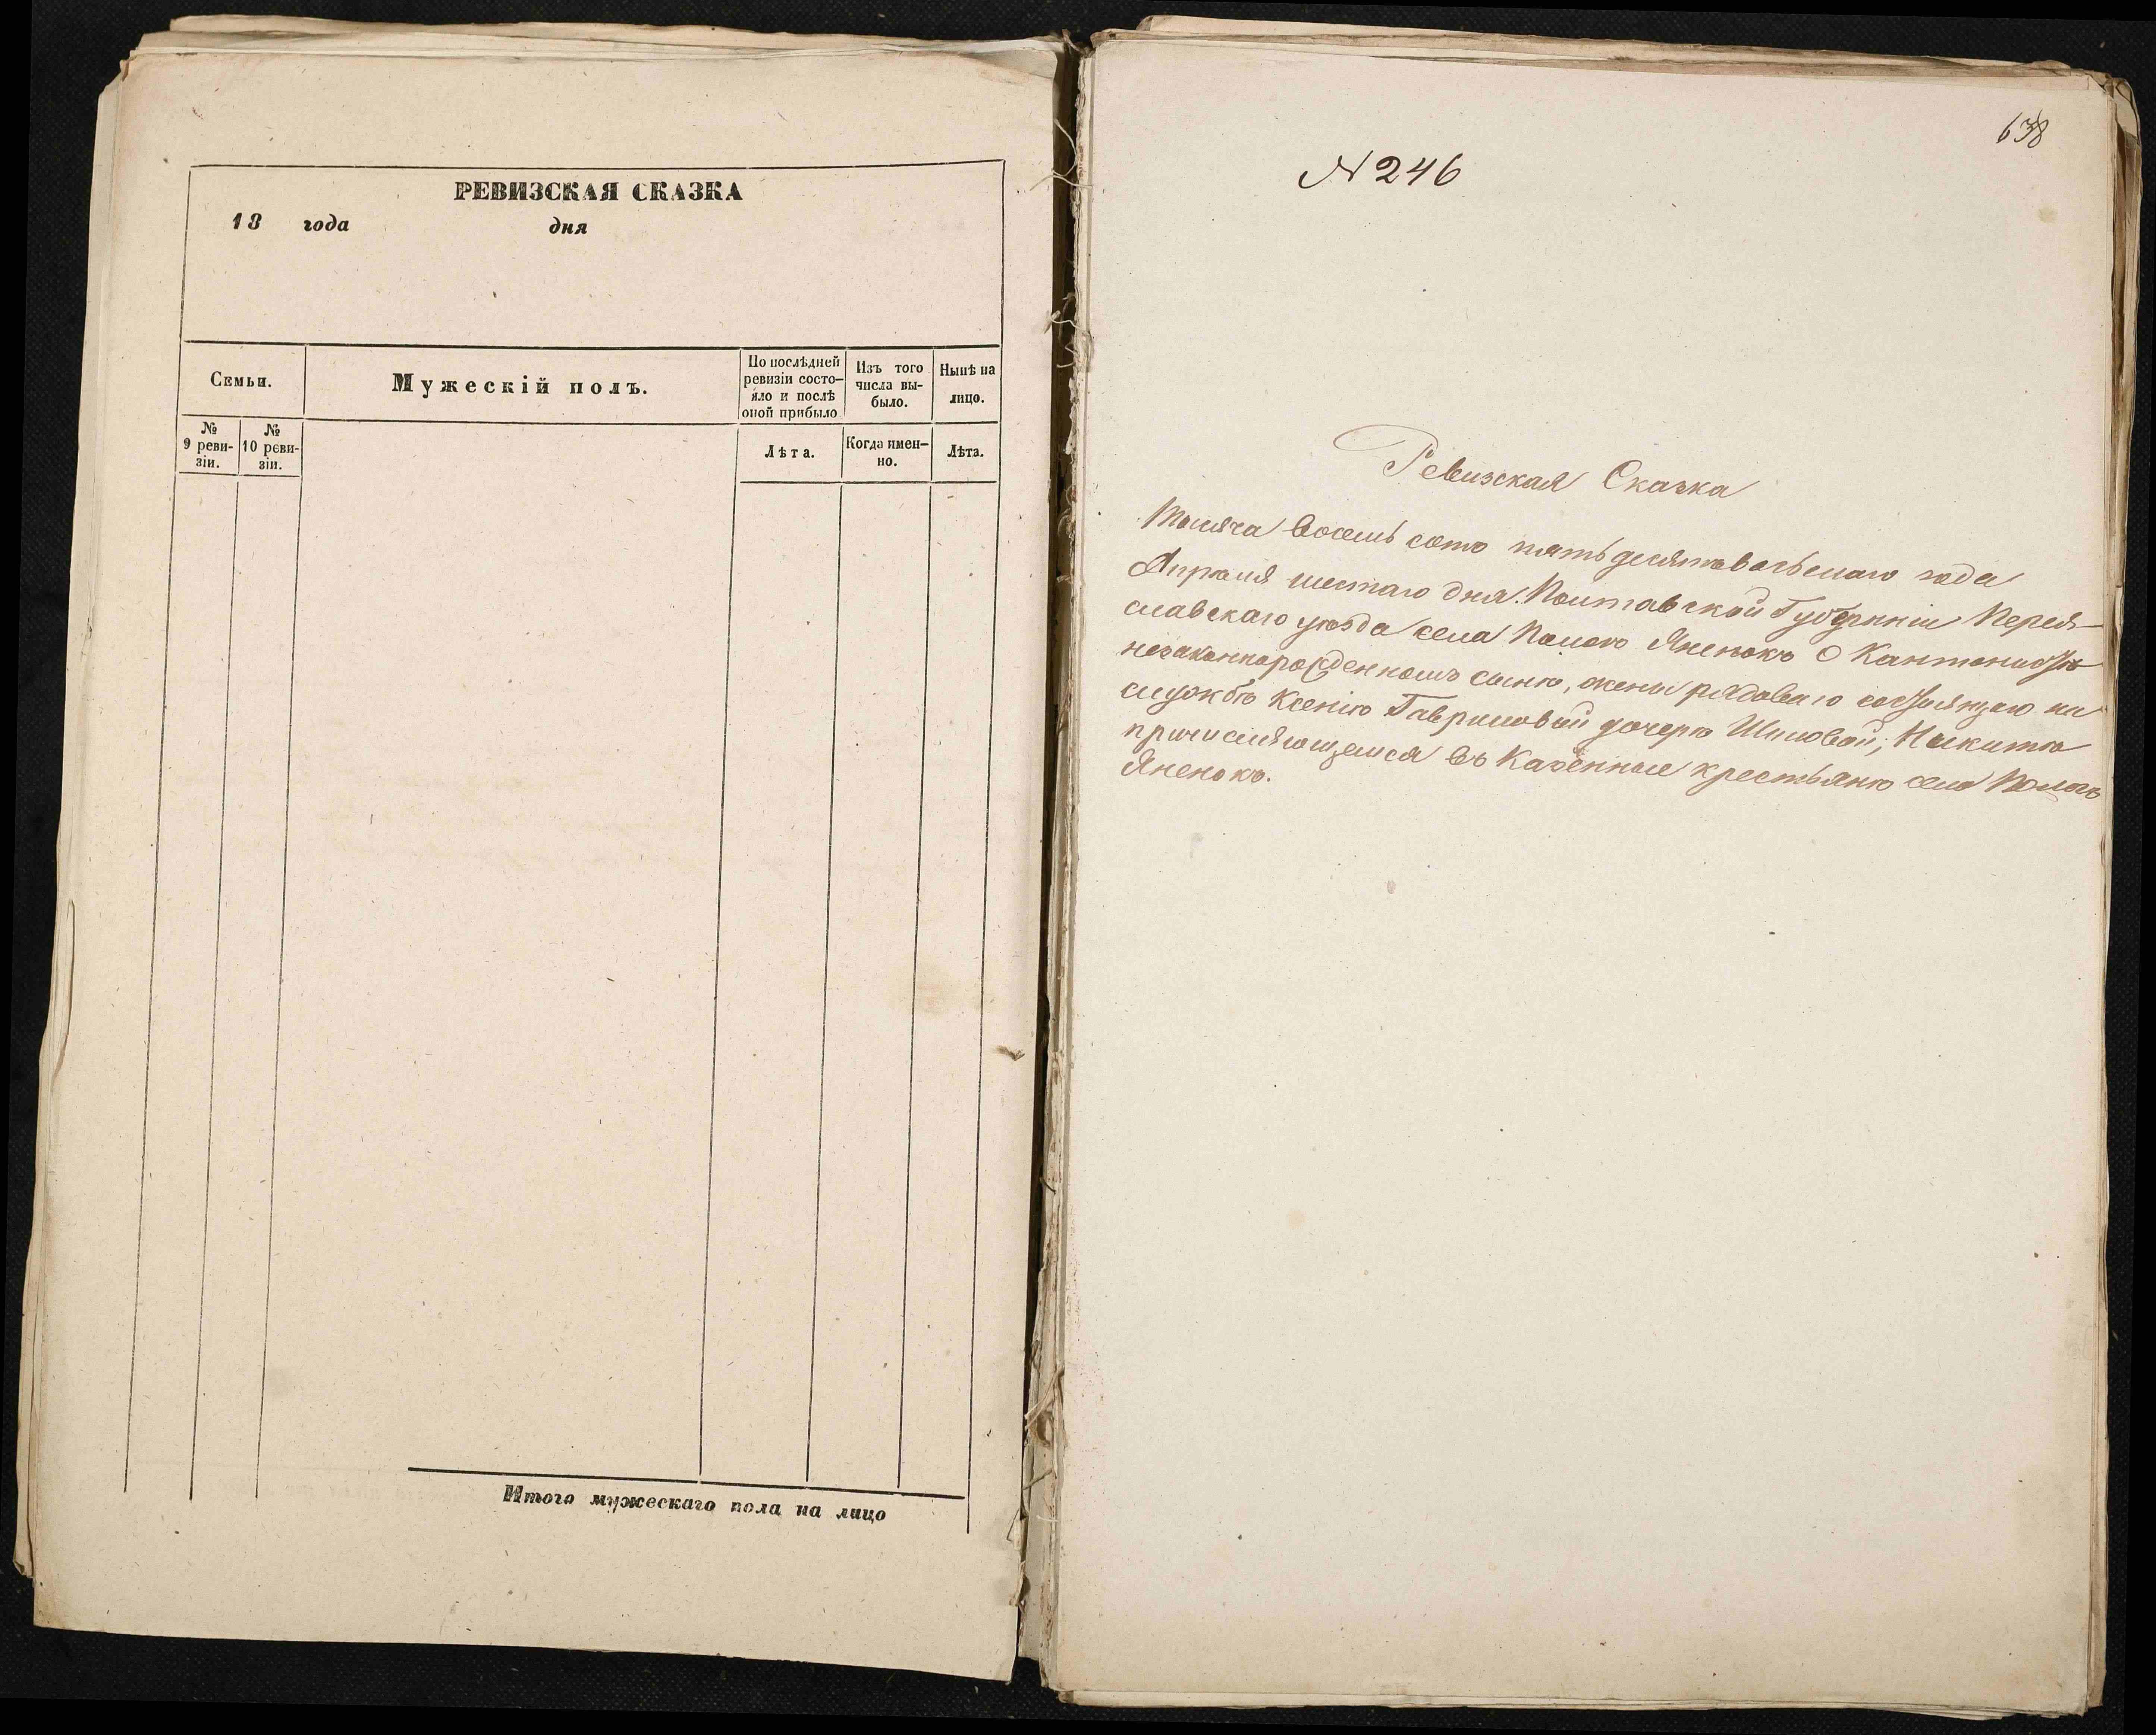 РЕВИЗСКАЯ СКАЗКА
18 года дня
Семьи.
Мужескій полъ.
По послѣдней
ревизіи состо-
яло и послѣ
оной прибыло
Изъ того
числа вы-
было.
Нынѣ на
лицо.
№
9 реви-
зіи.
№
10 реви-
зіи.
Лѣта.
Когда имен-
но.
Лѣта.
Итого мужескаго пола на лицо
638
N 246
Ревизская Сказка
Тысяча восемь сотъ пятьдесятъ восьмаго года
Апрѣля шестаго дня. Полтавской Губерніи Перея-
славскаго уѣзда села Помокъ Яненокъ О Кантонистѣ
незаконнорожденномъ сынѣ, жены рядоваго состоящаго на
службѣ Ксеніи Гавриловой дочери Шиловой; Никитѣ
причисляющемся въ Казенные крестьяне села
Яненокъ.